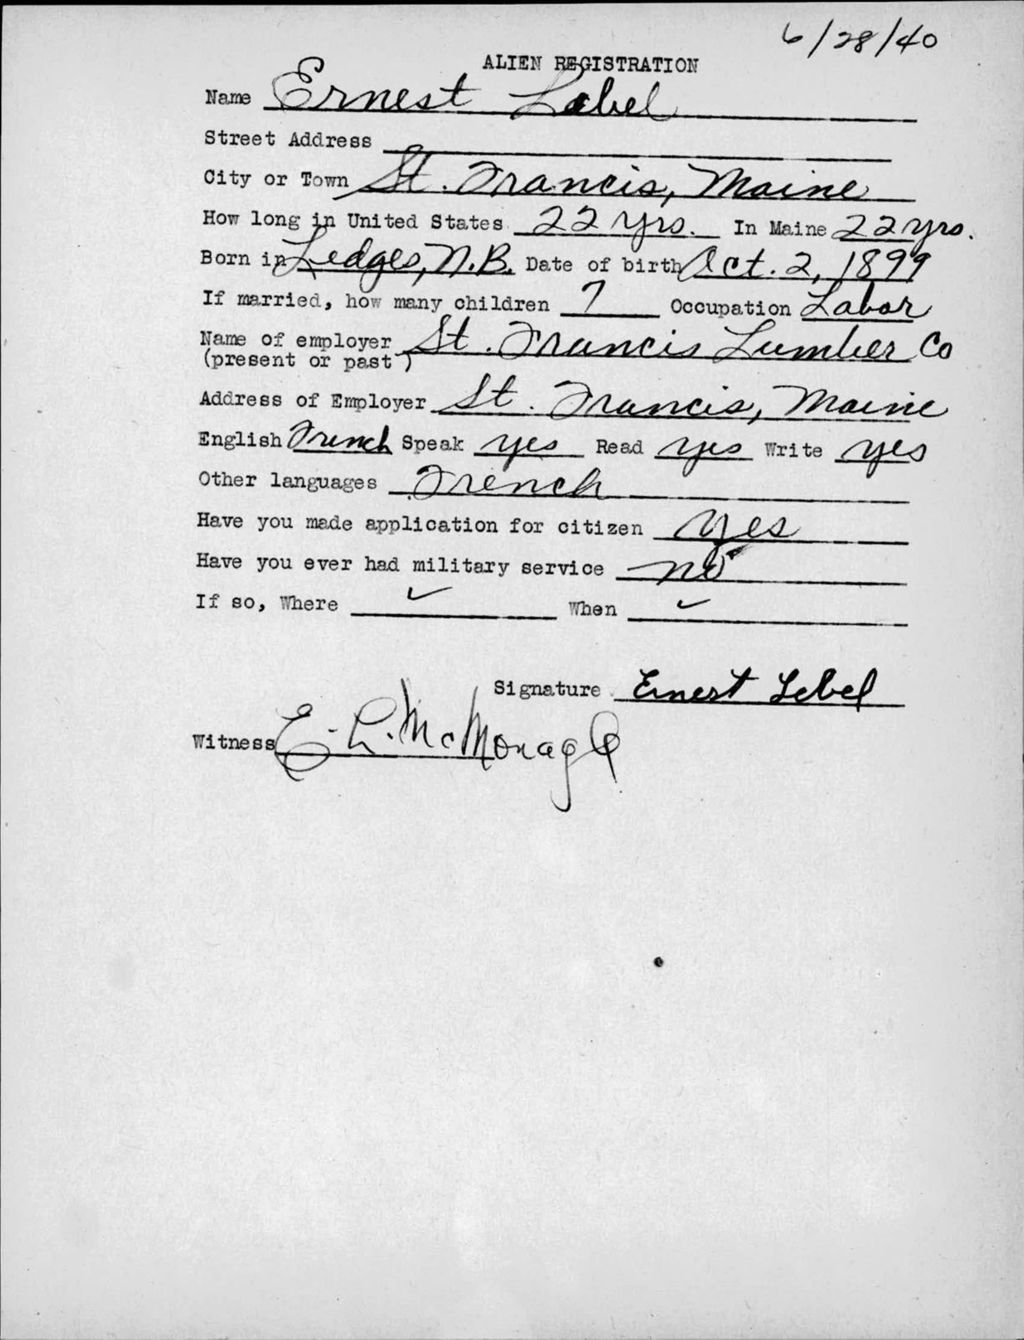 6/28/40
ALIEN REGISTRATION
Name Ernest Label
Street Address
City or Town St. Francis, Maine
How long in United States 22 yrs. In Maine 22 yrs.
Born in Ledges, N.B. Date of birth Oct. 2, 1899
If married, how many children 7 Occupation Labor
Name of employer St. Francis Lumber Co
(present or past)
Address of Employer St. Francis, Maine
English French Speak yes Read yes Write yes
Other languages French
Have you made application for citizen yes
Have you ever had military service no
If so, Where ✓ When ✓
Signature Ernest Lebel
Witness E. L. McMonagle